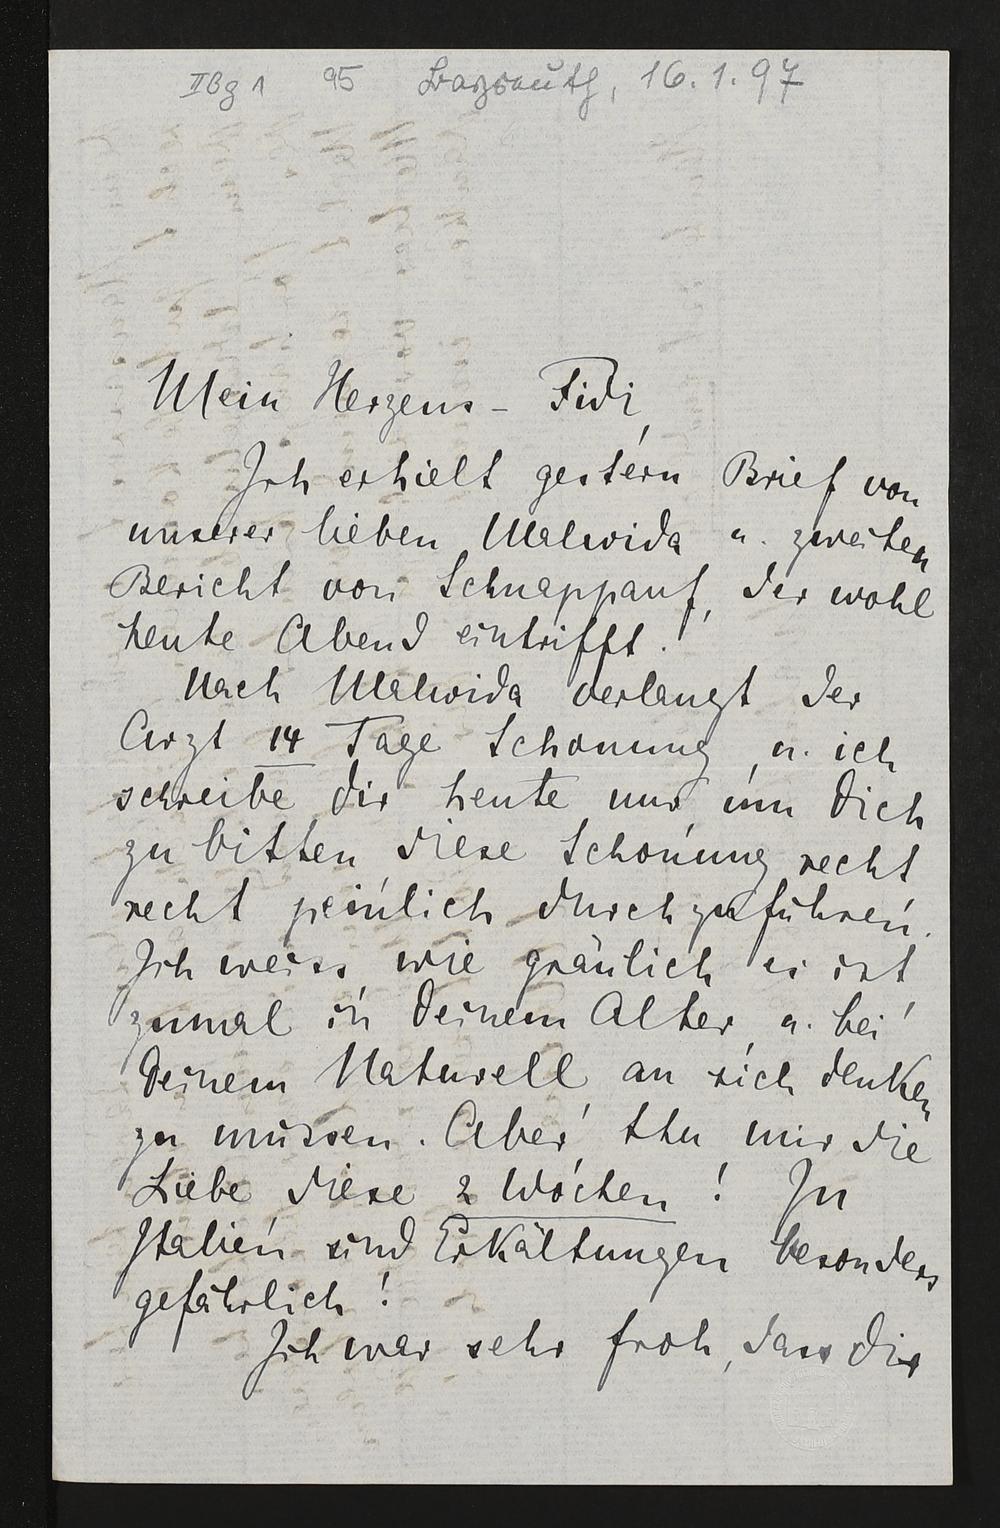 IIBg 1 95 Bayreuth, 16.1.97
Mein Herzens-Fidi,
Ich erhielt gestern Brief von
unserer lieben Malwida u. zweiten
Bericht von Schnappauf, der wohl
heute Abend eintrifft.
Nach Malwida verlangt der
Arzt 14 Tage Schonung, u. ich
schreibe dir heute nur, um Dich
zu bitten diese Schonung recht
recht peinlich durchzuführen.
Ich weiss, wie gräulich es ist
zumal in Deinem Alter, u. bei
Deinem Naturell, an sich denken
zu müssen. Aber, thu mir die
Liebe diese 2 Wochen! In
Italien sind Erkältungen besonders
gefährlich!
Ich war sehr froh, dass Dir